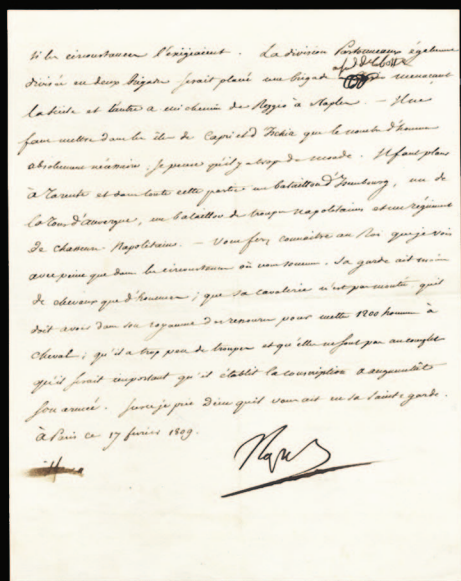 si les circonstances l'exigeaient. La division Partouneaux également
divisée en deux brigades serait placée une brigade menaçant
la Sicile et l'autre à mi chemin de Reggio à Naples. — Il ne
faut mettre dans les iles de Capri et d'Ischia que le nombre d'hommes
absolument nécessaire, je pense qu'il y a trop de monde. Il faut placer
à Tarente et dans toute cette partie un bataillon d'Isembourg, un de
la Tour d'auvergne, un bataillon de troupes napolitaines et un régiment
de chasseurs Napolitains. — Vous ferez connaître au Roi que je vois
avec peine que dans les circonstances où nous sommes, sa garde ait moins
de chevaux que d'hommes; que sa cavalerie n'est pas montée qu'il
doit avoir dans son royaume des ressources pour mettre 1200 hommes à
cheval; qu'il a trop peu de troupes et qu'elles ne sont pas au complet
qu'il serait important qu'il établit la conscription et augmentât
son armée. Sur ce je prie Dieu qu'il vous ait en sa sainte garde.
à Paris ce 17 février 1809.
Nap